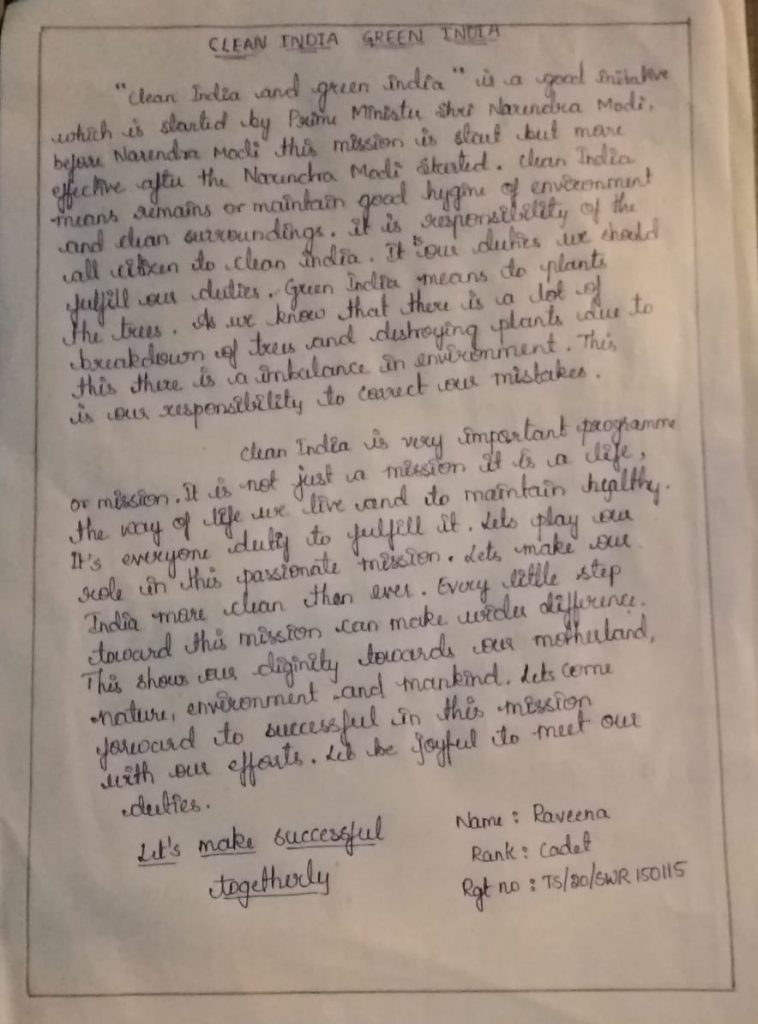 CLEAN INDIA GREEN INDIA
"Clean India and green india" is a good initative
which is started by Prime Minister Shri Narendra Modi.
before Narendra Modi this mission is start but more
effective after the Narendra Modi started. Clean India
means remains or maintain good hygine of environment
and clean surroundings. it is responsibility of the
all citizen to clean india. It our duties we should
fulfill our duties. Green India means to plants
the trees. As we know that there is a lot of
breakdown of trees and destroying plants due to
this there is a imbalance in environment. This
is our responsibility to correct our mistakes.
clean India is very important programme
or mission. It is not just a mission it is a life,
the way of life we live and to maintain healthy.
It's everyone duty to fulfill it. Lets play our
role in this passionate mission. Lets make our
India more clean then ever. Every little step
toward this mission can make wider difference.
This shows our diginity towards our motherland,
nature, environment and mankind. Lets come
forward to successful in this mission
with our efforts. Let be joyful to meet our
duties.
Let's make successful
togetherly
Name : Raveena
Rank : Cadet
Rgt no : TS/20/SWR 150115